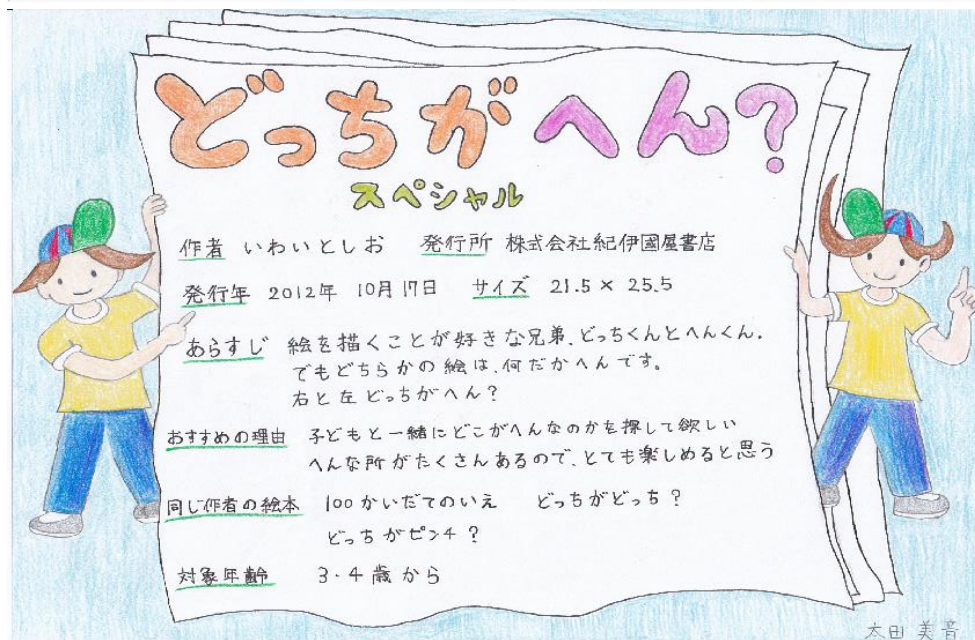 どっちがへん?
スペシャル
作者 いわいとしお 発行所 株式会社紀伊國屋書店
発行年 2012年 10月17日 サイズ 21.5 × 25.5
あらすじ 絵を描くことが好きな兄弟、どっちくんとへんくん.
でもどちらかの絵は、何だかへんです。
右と左どっちがへん?
おすすめの理由 子どもと一緒にどこがへんなのかを探して欲しい
へんな所がたくさんあるので、とても楽しめると思う
同じ作者の絵本 100かいだてのいえ どっちがどっち?
どっちがピンチ?
対象年齢 3・4歳から
太田美音